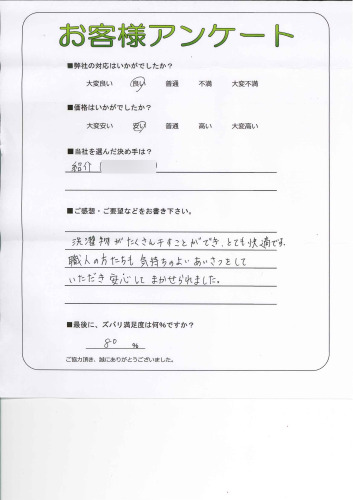 お客様アンケート
■弊社の対応はいかがでしたか？
大変良い 良い 普通 不満 大変不満
■価格はいかがでしたか？
大変安い 安い 普通 高い 大変高い
■当社を選んだ決め手は？
紹介
■ご感想・ご要望などをお書き下さい。
洗濯物がたくさん干すことができ、とても快適です。
職人の方たちも気持ちのよいあいさつをして
いただき安心してまかせられました。
■最後に、ズバリ満足度は何％ですか？
80 ％
ご協力頂き、誠にありがとうございました。